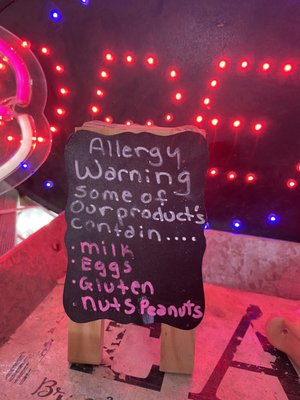 Allergy
Warning
some of
Our product's
contain....
· milk
· Eggs
· Gluten
· nuts Peanuts
CA